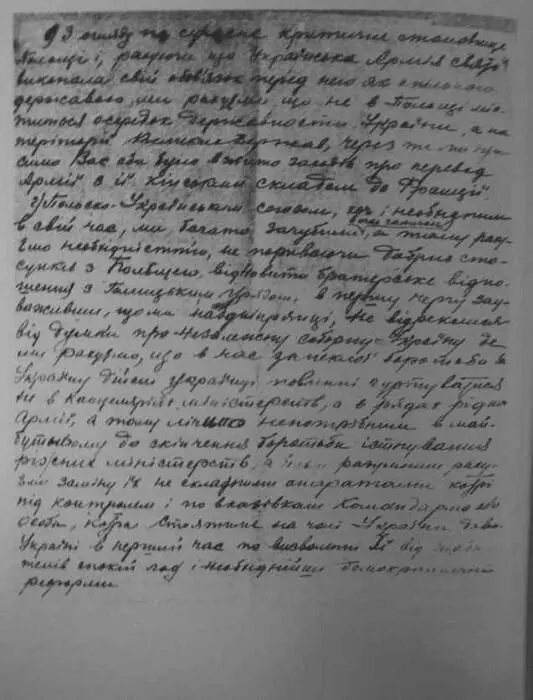 з огляду на сучасне критичне становище
Польщі і, рахуючи що Українська Армія свій
виконала свій обовязок перед нею як союзною
державою, ми рахуємо, що не в Польщі
осередок Державности України, а на
територіі Великих Держав, через те ми про
симо Вас аби було вжито заходів про перевід
Армії з її кінським складом до Франції.
г) Польсько-Українським союзом, хоч і необхідним
в свій час, ми багато загубили, а тому раху
ємо необхідністю, не пориваючи добрих сто
сунків з Польщею, відновити братерське відно
шення з Галицьким Урядом, в першу чергу зау
важивши, що ми наддніпрянці, не відреклися
від думки про Незалежну соборну Україну
ми рахуємо, що в час запеклої боротьби за
Україну дійсні українці повинні гуртуватися
не в канцеляріях міністерств, а в рядах рідної
Армії, а тому лічимо непотрібним в май
бутньому до скінчення боротьби істнування
ріжних міністерств, а
заміну їх не складними апаратами
під контролем і по вказівкам Командарма або
особи, котра стоятиме на чолі України
Україні в перший час по визволенню її від
спокій лад і необхідніші демократичні
реформи